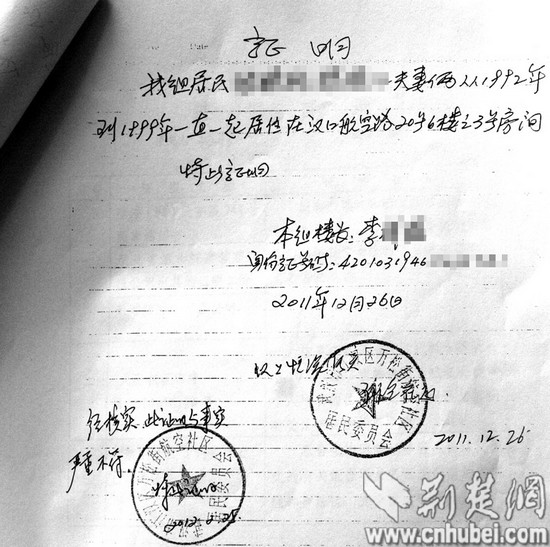 证明
我组居民 夫妻俩从1992年
到1999年一直一起居住在汉口航空路20号6楼之3号房间
特此证明
本组楼长:李
身份证号码:4201031946
2011年12月26日
以上情况属实
区万松街 社区
居民委员会
2011.12.26
经核实,此证明与事实
严重不符.
万松街航空社区
居民委员会
特此证明
2012.
荆楚網
www.cnhubei.com